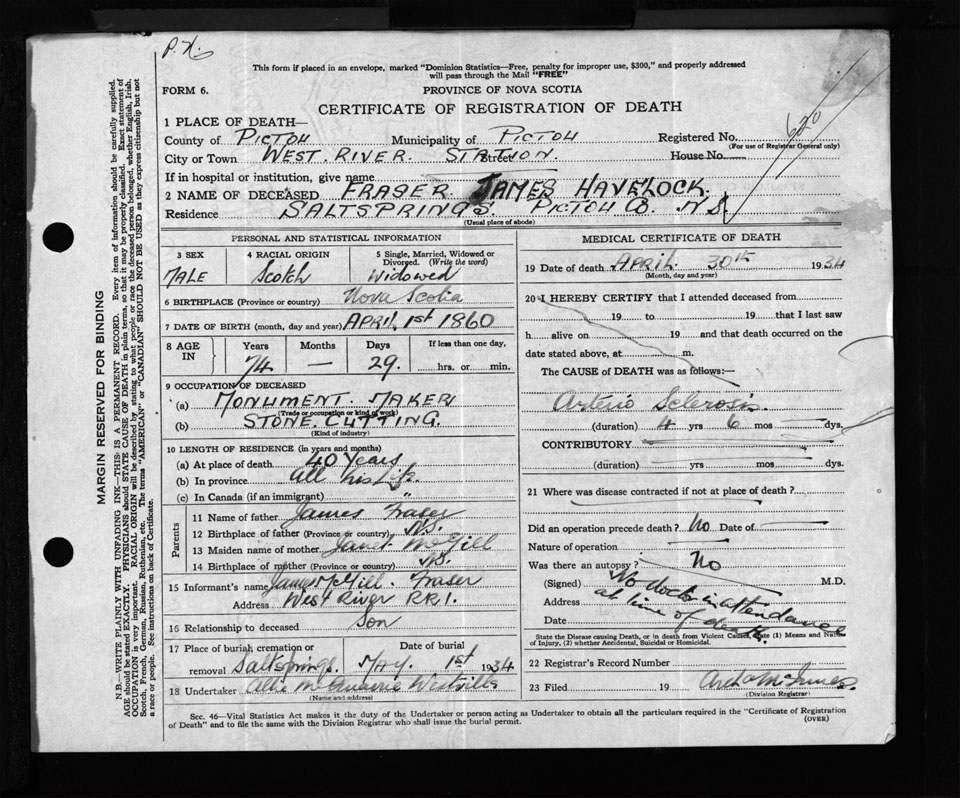 P.H.
This form if placed in an envelope, marked "Dominion Statistics—Free, penalty for improper use, $300," and properly addressed
will pass through the Mail "FREE"
FORM 6.
PROVINCE OF NOVA SCOTIA
CERTIFICATE OF REGISTRATION OF DEATH
1 PLACE OF DEATH—
County of PICTOU Municipality of PICTOU Registered No. 620
(For use of Registrar General only)
City or Town WEST RIVER STATION. Street House No.
If in hospital or institution, give name
2 NAME OF DECEASED FRASER JAMES HAVELOCK.
Residence SALTSPRINGS. PICTOU CO. N.S.
(Usual place of abode)
PERSONAL AND STATISTICAL INFORMATION
3 SEX 4 RACIAL ORIGIN 5 Single, Married, Widowed or
Divorced. (Write the word)
MALE Scotch Widowed
6 BIRTHPLACE (Province or country) Nova Scotia
7 DATE OF BIRTH (month, day and year) APRIL 1st 1860
8 AGE IN Years Months Days If less than one day,
74 — 29. hrs. or min.
9 OCCUPATION OF DECEASED
(a) MONUMENT MAKER
(Trade or occupation or kind of work)
(b) STONE CUTTING.
(Kind of industry)
10 LENGTH OF RESIDENCE (in years and months)
(a) At place of death 40 Years
(b) In province all his Life
(c) In Canada (if an immigrant) "
Parents
11 Name of father James Fraser
12 Birthplace of father (Province or country) N.S.
13 Maiden name of mother Janet McGill
14 Birthplace of mother (Province or country) N.S.
15 Informant's name James McGill Fraser
Address West River R.R.1.
16 Relationship to deceased Son
17 Place of burial, cremation or Date of burial
removal Saltsprings. MAY. 1st 1934
18 Undertaker Westville
(Name and address)
MEDICAL CERTIFICATE OF DEATH
19 Date of death APRIL 30th 1934
(Month, day and year)
20 I HEREBY CERTIFY that I attended deceased from
19 to 19 that I last saw
h alive on 19 and that death occurred on the
date stated above, at m.
The CAUSE of DEATH was as follows:—
Arterio Sclerosis.
(duration) 4 yrs 6 mos — dys.
CONTRIBUTORY
(duration) yrs mos dys.
21 Where was disease contracted if not at place of death?
Did an operation precede death? No Date of
Nature of operation
Was there an autopsy? No
(Signed) M.D.
Address
Date
No doctor in attendance
at time of death.
State the Disease causing Death, or in death from Violent Causes, state (1) Means and Nature
of Injury, (2) whether Accidental, Suicidal or Homicidal.
22 Registrar's Record Number
23 Filed 19
(Division Registrar)
Sec. 46—Vital Statistics Act makes it the duty of the Undertaker or person acting as Undertaker to obtain all the particulars required in the "Certificate of Registration
of Death" and to file the same with the Division Registrar who shall issue the burial permit. (OVER)
MARGIN RESERVED FOR BINDING
N.B.—WRITE PLAINLY WITH UNFADING INK—THIS IS A PERMANENT RECORD. Every item of information should be carefully supplied.
AGE should be stated EXACTLY. PHYSICIANS should STATE CAUSE OF DEATH in plain terms, so that it may be properly classified. Exact statement of
OCCUPATION is very important. RACIAL ORIGIN will be described by stating to what people or race the deceased person belonged, whether English, Irish,
Scotch, French, German, Russian, Ruthenian, etc. The terms "AMERICAN" or "CANADIAN" SHOULD NOT BE USED as they express citizenship but not
a race or people. See instructions on back of Certificate.